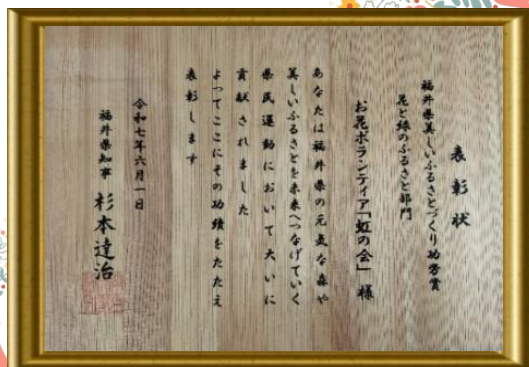 表彰状
福井県美しいふるさとづくり功労賞
花と緑のふるさと部門
お花ボランティア「虹の会」 様
あなたは福井県の元気な森や
美しいふるさとを未来へつなげていく
県民運動において大いに
貢献されました
よってここにその功績をたたえ
表彰します
令和七年六月一日
福井県知事 杉本達治